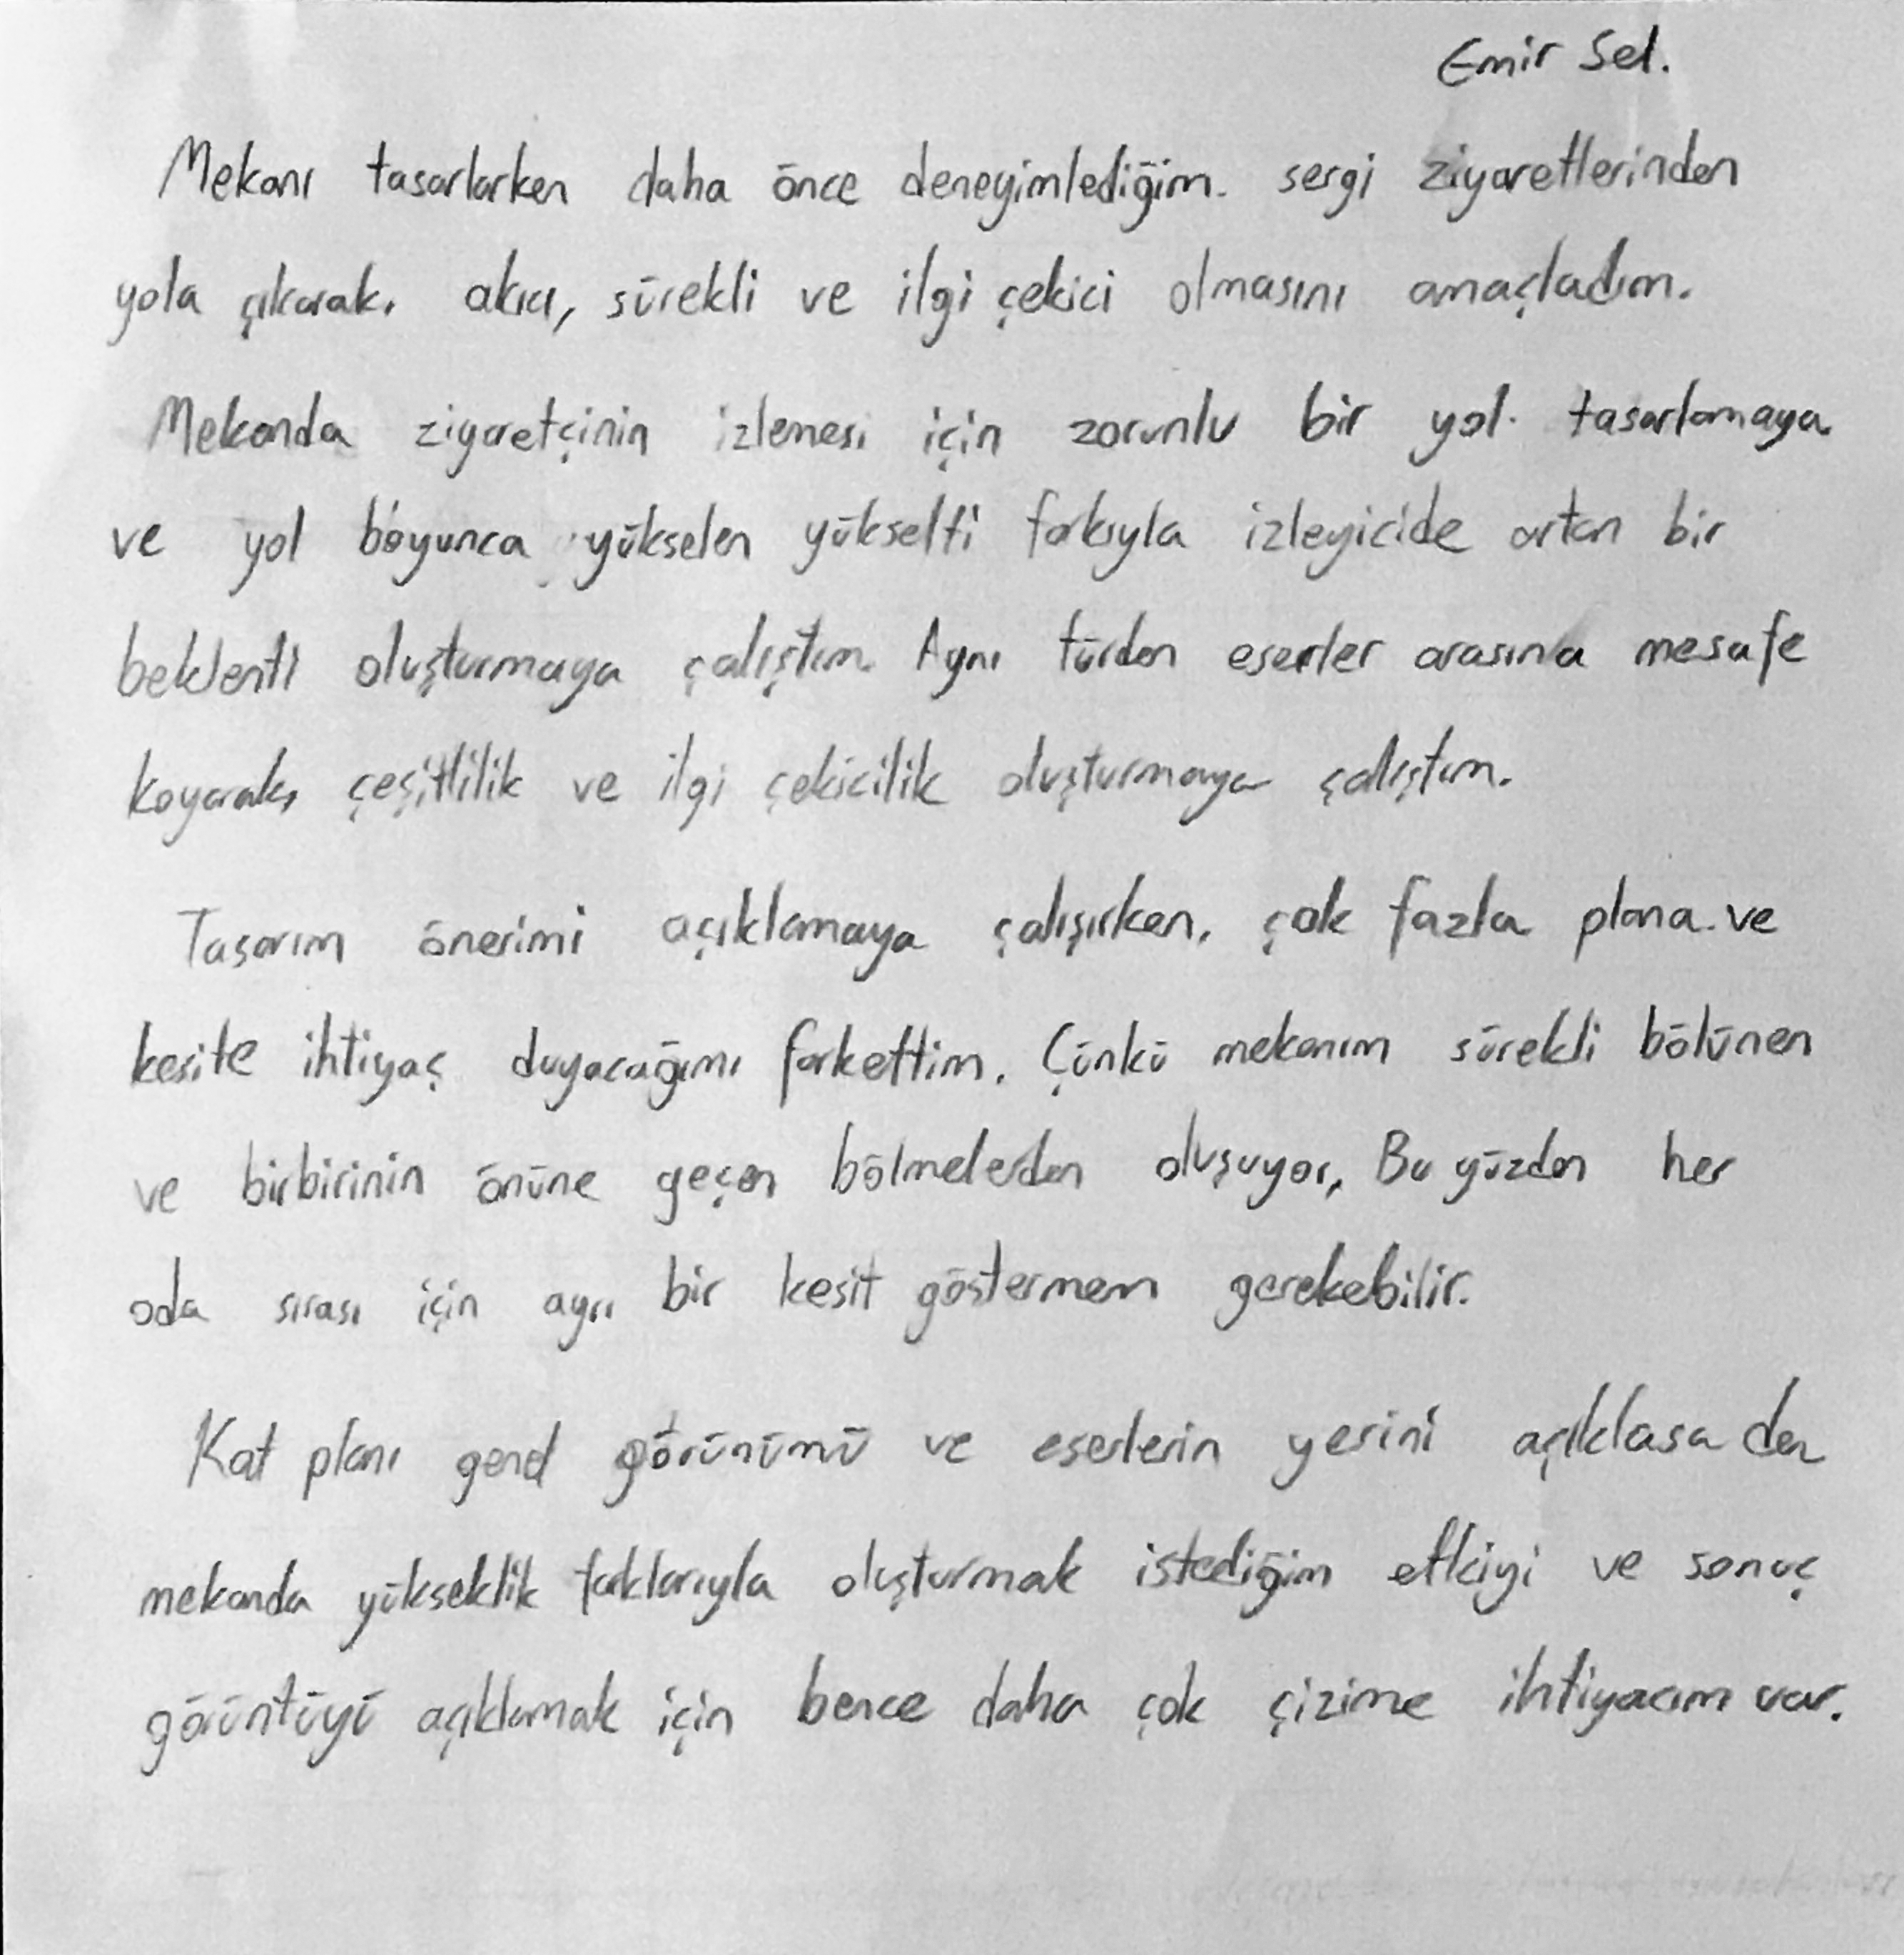 Emir Sel.
Mekanı tasarlarken daha önce deneyimlediğim. sergi ziyaretlerinden
yola çıkarak, akıcı, sürekli ve ilgi çekici olmasını amaçladım.
Mekanda ziyaretçinin izlemesi için zorunlu bir yol tasarlamaya
ve yol boyunca yükselen yükselti farkıyla izleyicide artan bir
beklenti oluşturmaya çalıştım. Aynı türden eserler arasına mesafe
koyarak, çeşitlilik ve ilgi çekicilik oluşturmaya çalıştım.
Tasarım önerimi açıklamaya çalışırken, çok fazla plana ve
kesite ihtiyaç duyacağımı farkettim. Çünkü mekanım sürekli bölünen
ve birbirinin önüne geçen bölmelerden oluşuyor, Bu yüzden her
oda sırası için ayrı bir kesit göstermem gerekebilir.
Kat planı genel görünümü ve eserlerin yerini açıklasa da
mekanda yükseklik farklarıyla oluşturmak istediğim etkiyi ve sonuç
görüntüyü açıklamak için bence daha çok çizime ihtiyacım var.